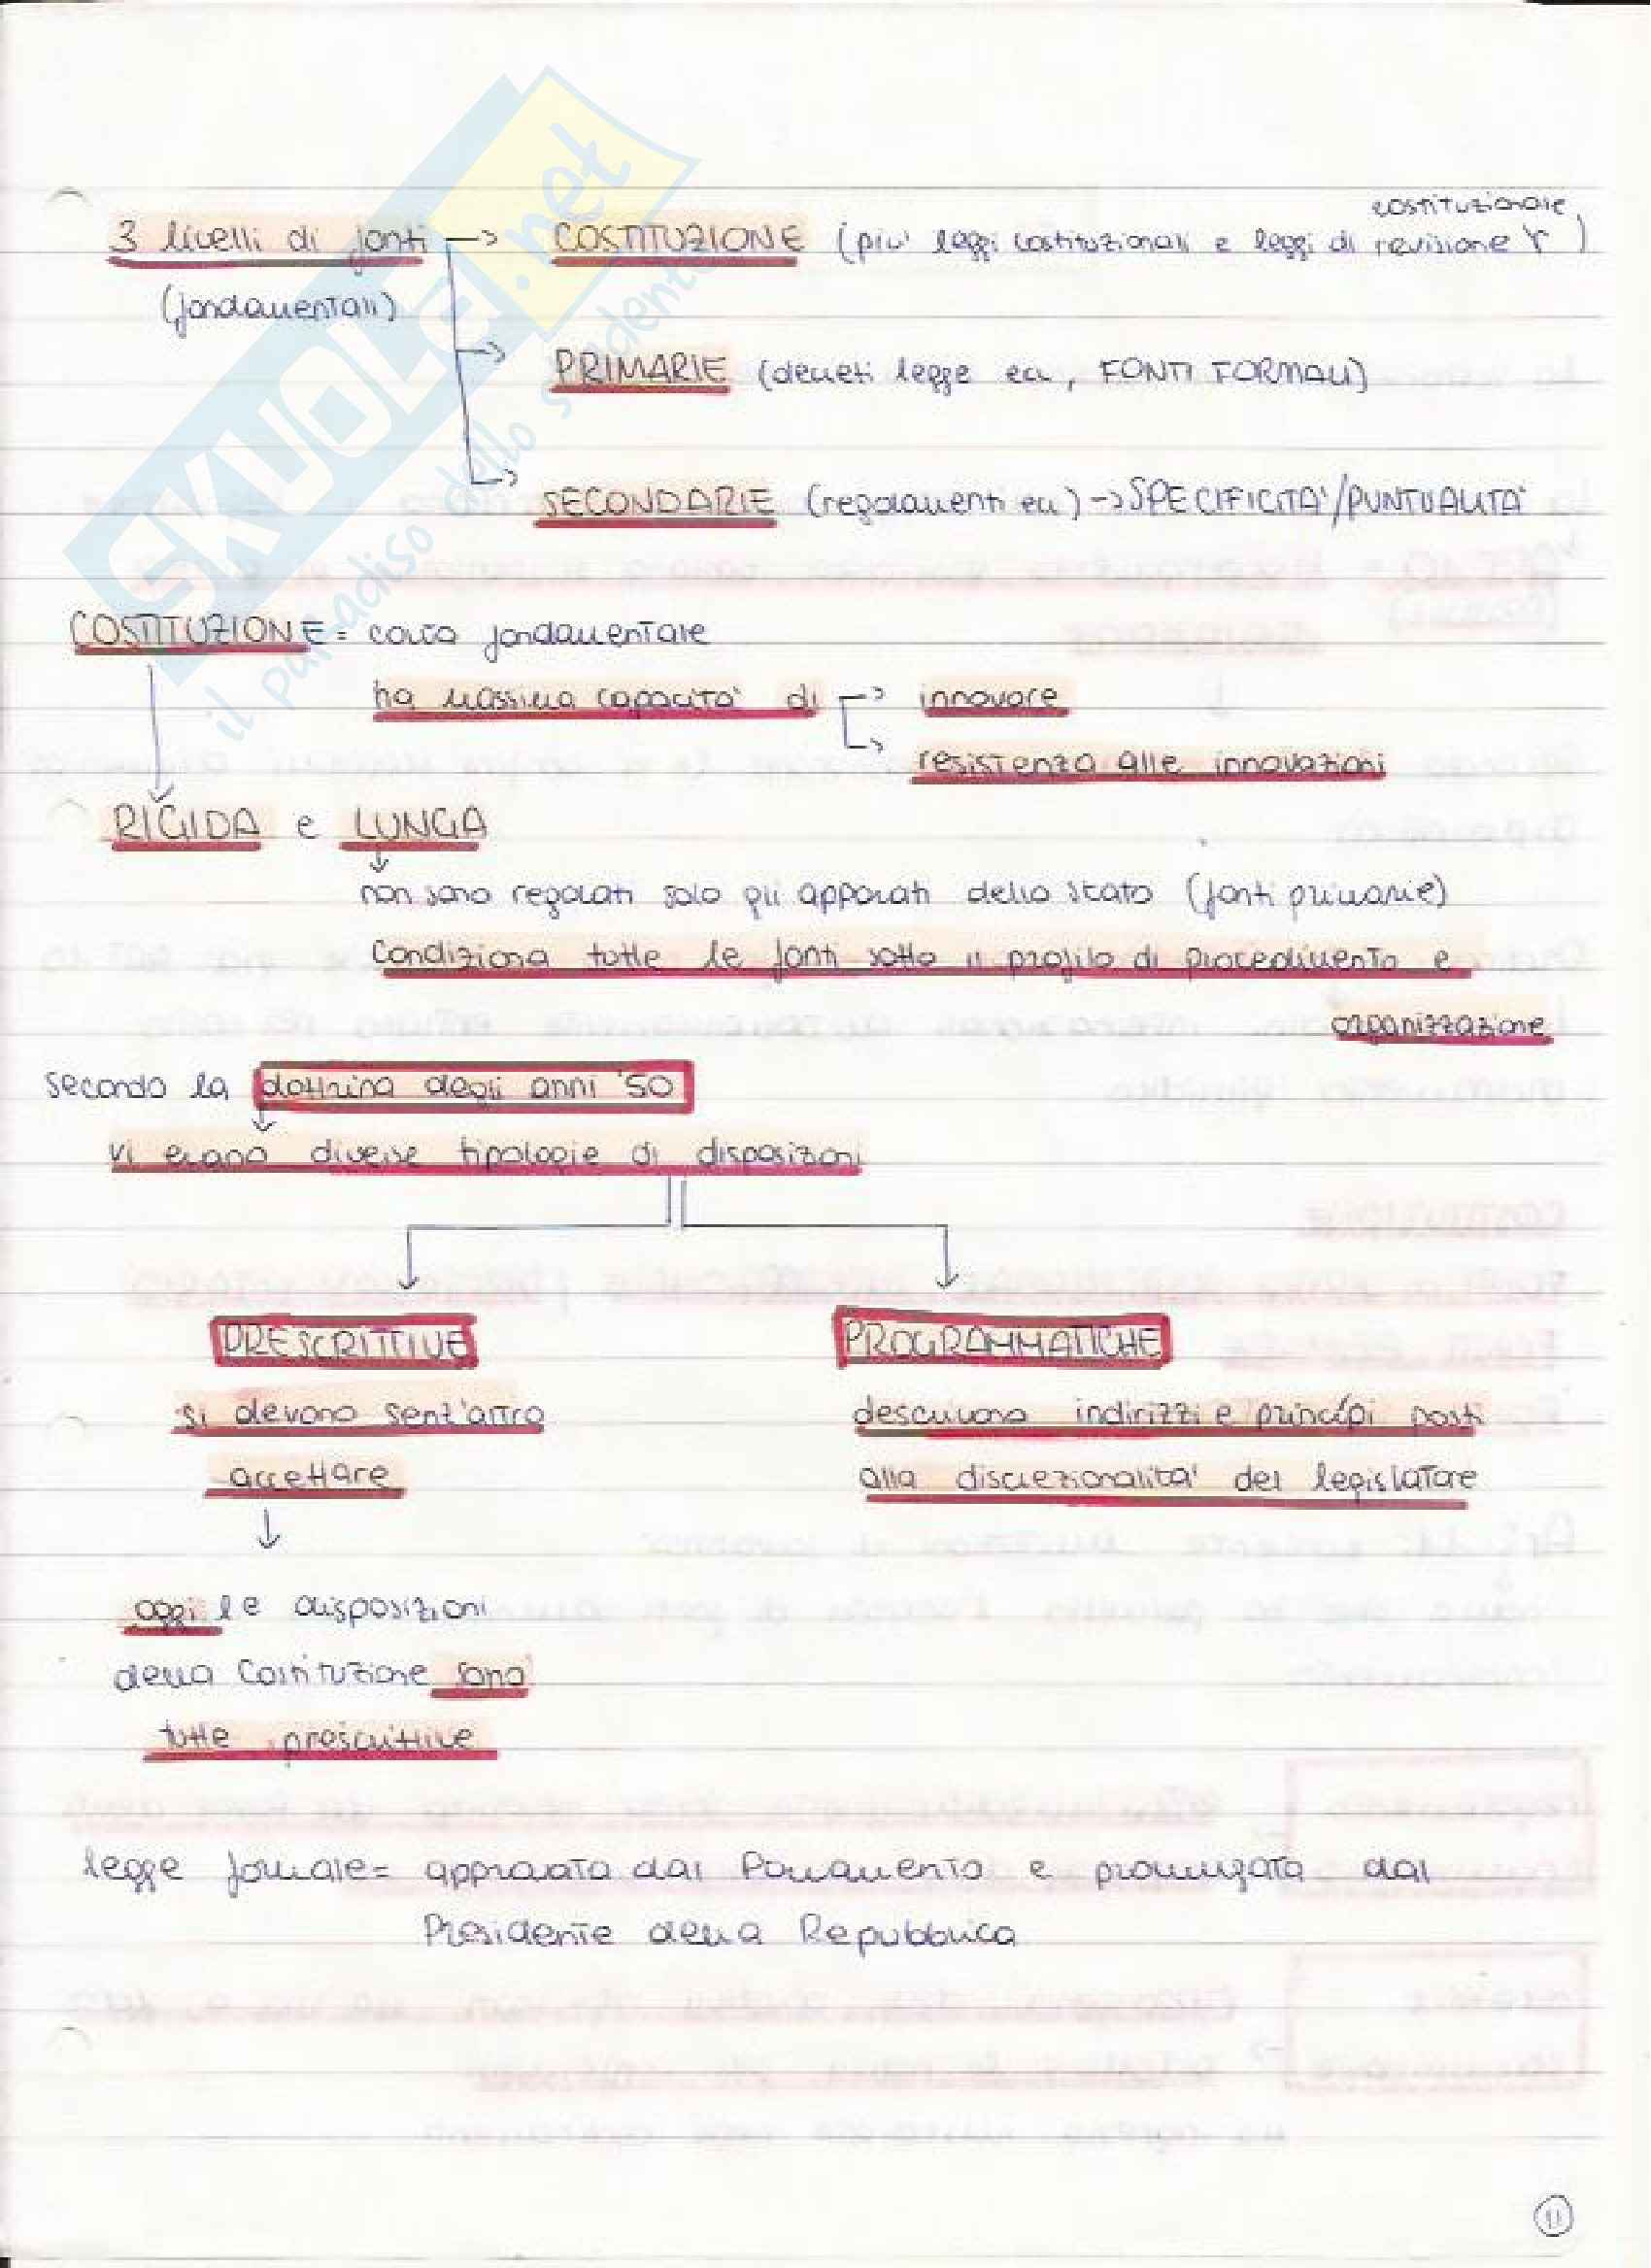 costituzionale
3 livelli di fonti → COSTITUZIONE (piu' leggi costituzionali e leggi di revisione )
(fondamentali)
PRIMARIE (decreti legge ecc, FONTI FORMALI)
SECONDARIE (regolamenti ecc) → SPECIFICITA'/PUNTUALITA'
COSTITUZIONE = carta fondamentale
ha massima capacita' di → innovare
→ resistenza alle innovazioni
RIGIDA e LUNGA
non sono regolati solo gli apparati dello stato (fonti primarie)
Condiziona tutte le fonti sotto il profilo di procedimento e
organizzazione
secondo la dottrina degli anni '50
vi erano diverse tipologie di disposizioni
PRESCRITTIVE PROGRAMMATICHE
si devono senz'altro descrivono indirizzi e princípi posti
accettare alla discrezionalita' del legislatore
oggi le disposizioni
della Costituzione sono
tutte prescrittive
legge formale = approvata dal Parlamento e promulgata dal
Presidente della Repubblica
11
SKUOLA.net
il paradiso dello studente